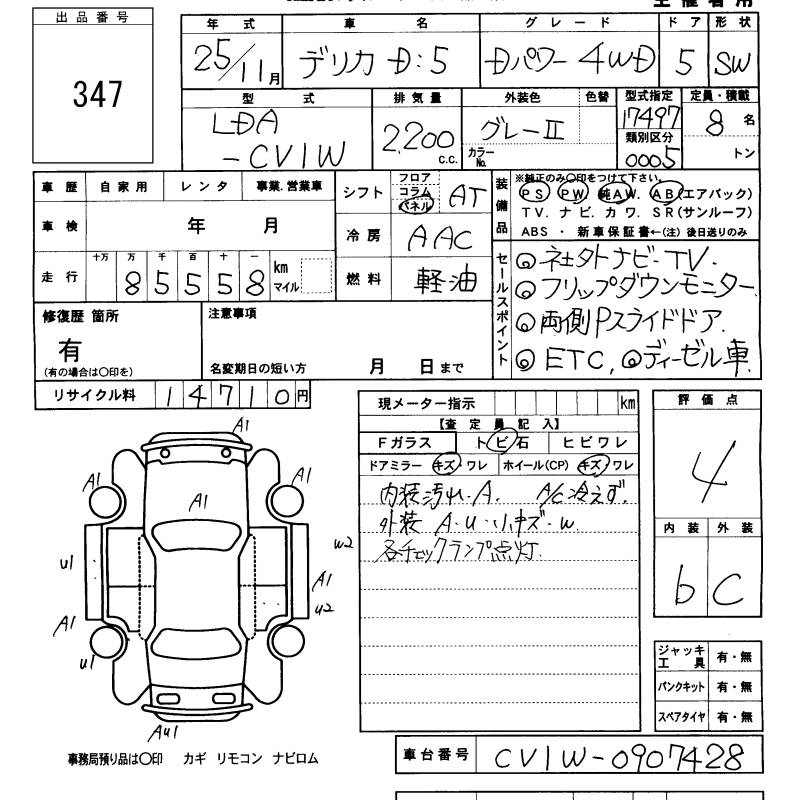 主催者用
出品番号
347
年式 車名 グレード ドア 形状
25/11月 デリカ D:5 Dパワー 4WD 5 SW
型式 排気量 外装色 色替 型式指定 定員・積載
LDA 2,200 グレーⅡ 17497 8名
-CV1W c.c. カラーNo. 類別区分
0005 トン
車歴 自家用 レンタ 事業.営業車
シフト フロア コラム パネル AT
車検 年 月
冷房 AAC
走行 十万 万 千 百 十 一
85558 km マイル
燃料 軽油
装備品 ※純正のみ〇印をつけて下さい。
PS PW. 純AW. AB(エアバック)
TV. ナビ. カワ. SR(サンルーフ)
ABS ・ 新車保証書←(注) 後日送りのみ
セールスポイント
◎社外ナビ-TV.
◎フリップダウンモニター.
◎両側Pスライドドア.
◎ETC, ◎ディーゼル車
修復歴 箇所
有
(有の場合は〇印を)
注意事項
名変期日の短い方 月 日まで
リサイクル料 14710円
現メーター指示 km
【査定員記入】
Fガラス トビ石 ヒビワレ
ドアミラー キズ・ワレ ホイール(CP) キズ・ワレ
内装汚れ.A. A/C冷えず.
外装 A.U.小キズ.W
各チェックランプ点灯.
評価点
4
内装 外装
b C
A1
A1 A1 A1
u1 w2
A1 u2
A1
u1
Au1
ジャッキ工具 有・無
パンクキット 有・無
スペアタイヤ 有・無
事務局預り品は〇印 カギ リモコン ナビロム
車台番号 CV1W-0907428